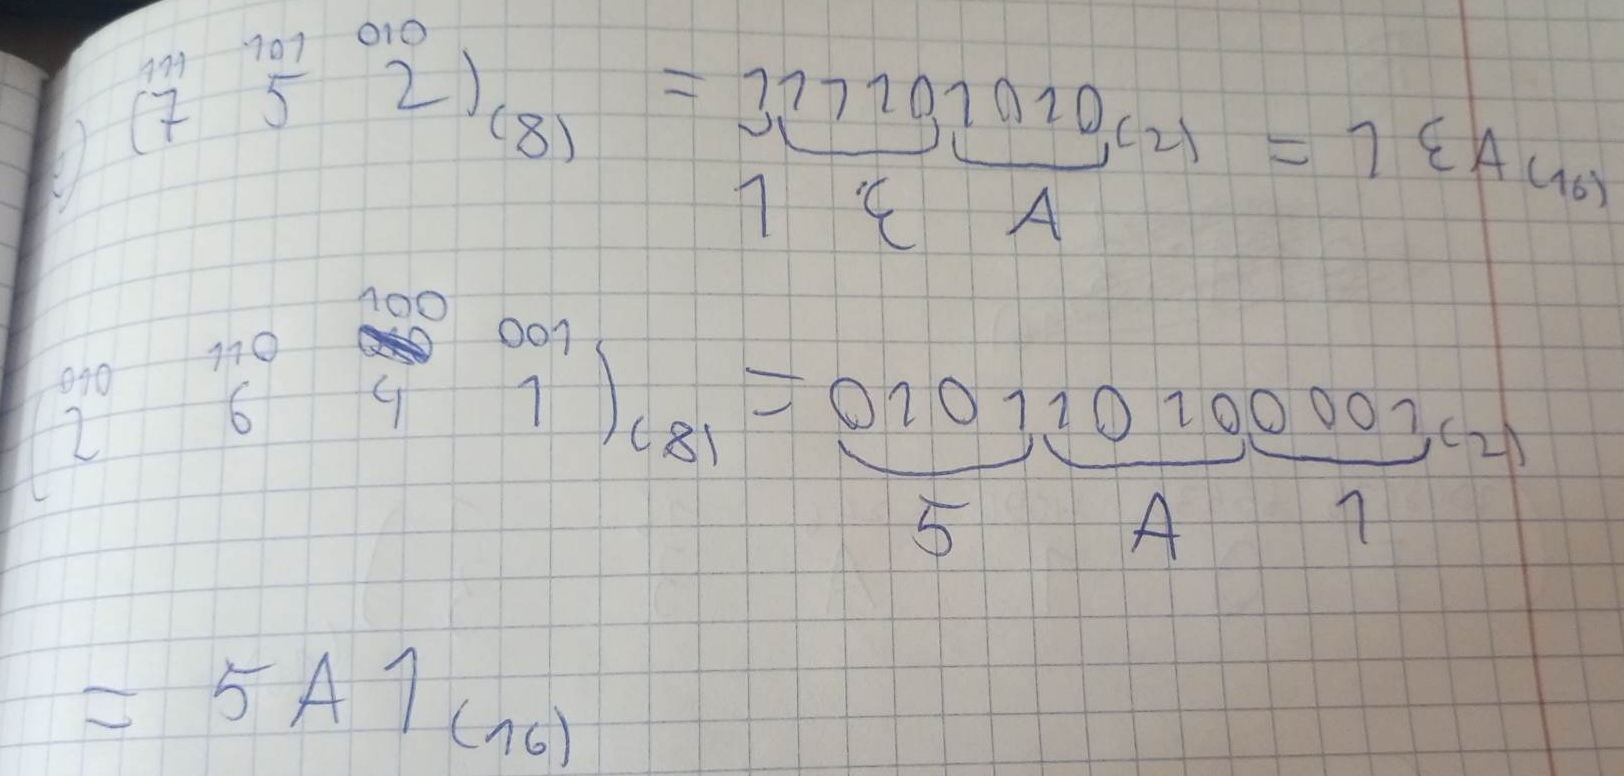 111 101 010
(7 5 2)(8) = 111101010(2) = 1EA(16)
1 E A
100
010 110 001
(2 6 4 1)(8) = 010110100001(2)
5 A 1
= 5A1(16)